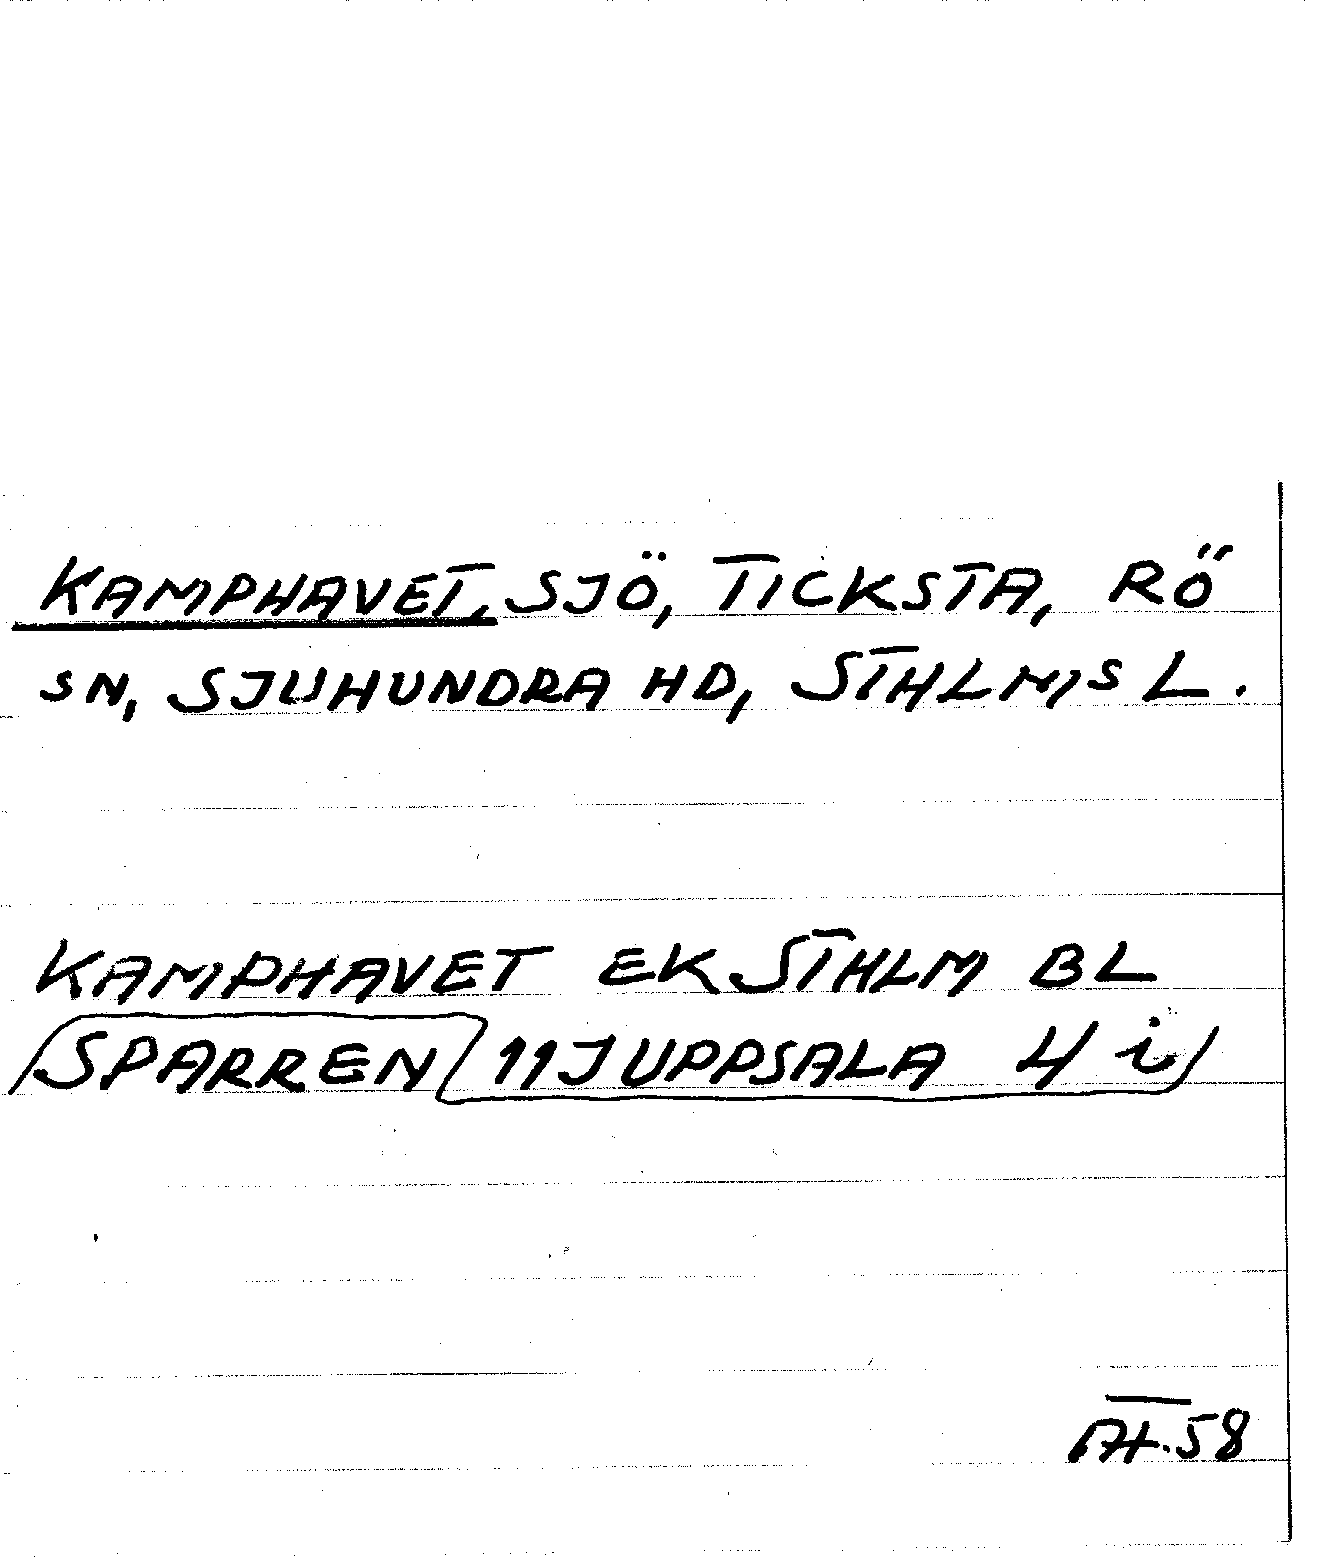 KAMPHAVET, SJÖ, TICKSTA, RÖ
SN, SJUHUNDRA HD, STHLMS L.
KAMPHAVET EK STHLM BL
SPARREN 11J UPPSALA 4 i
58